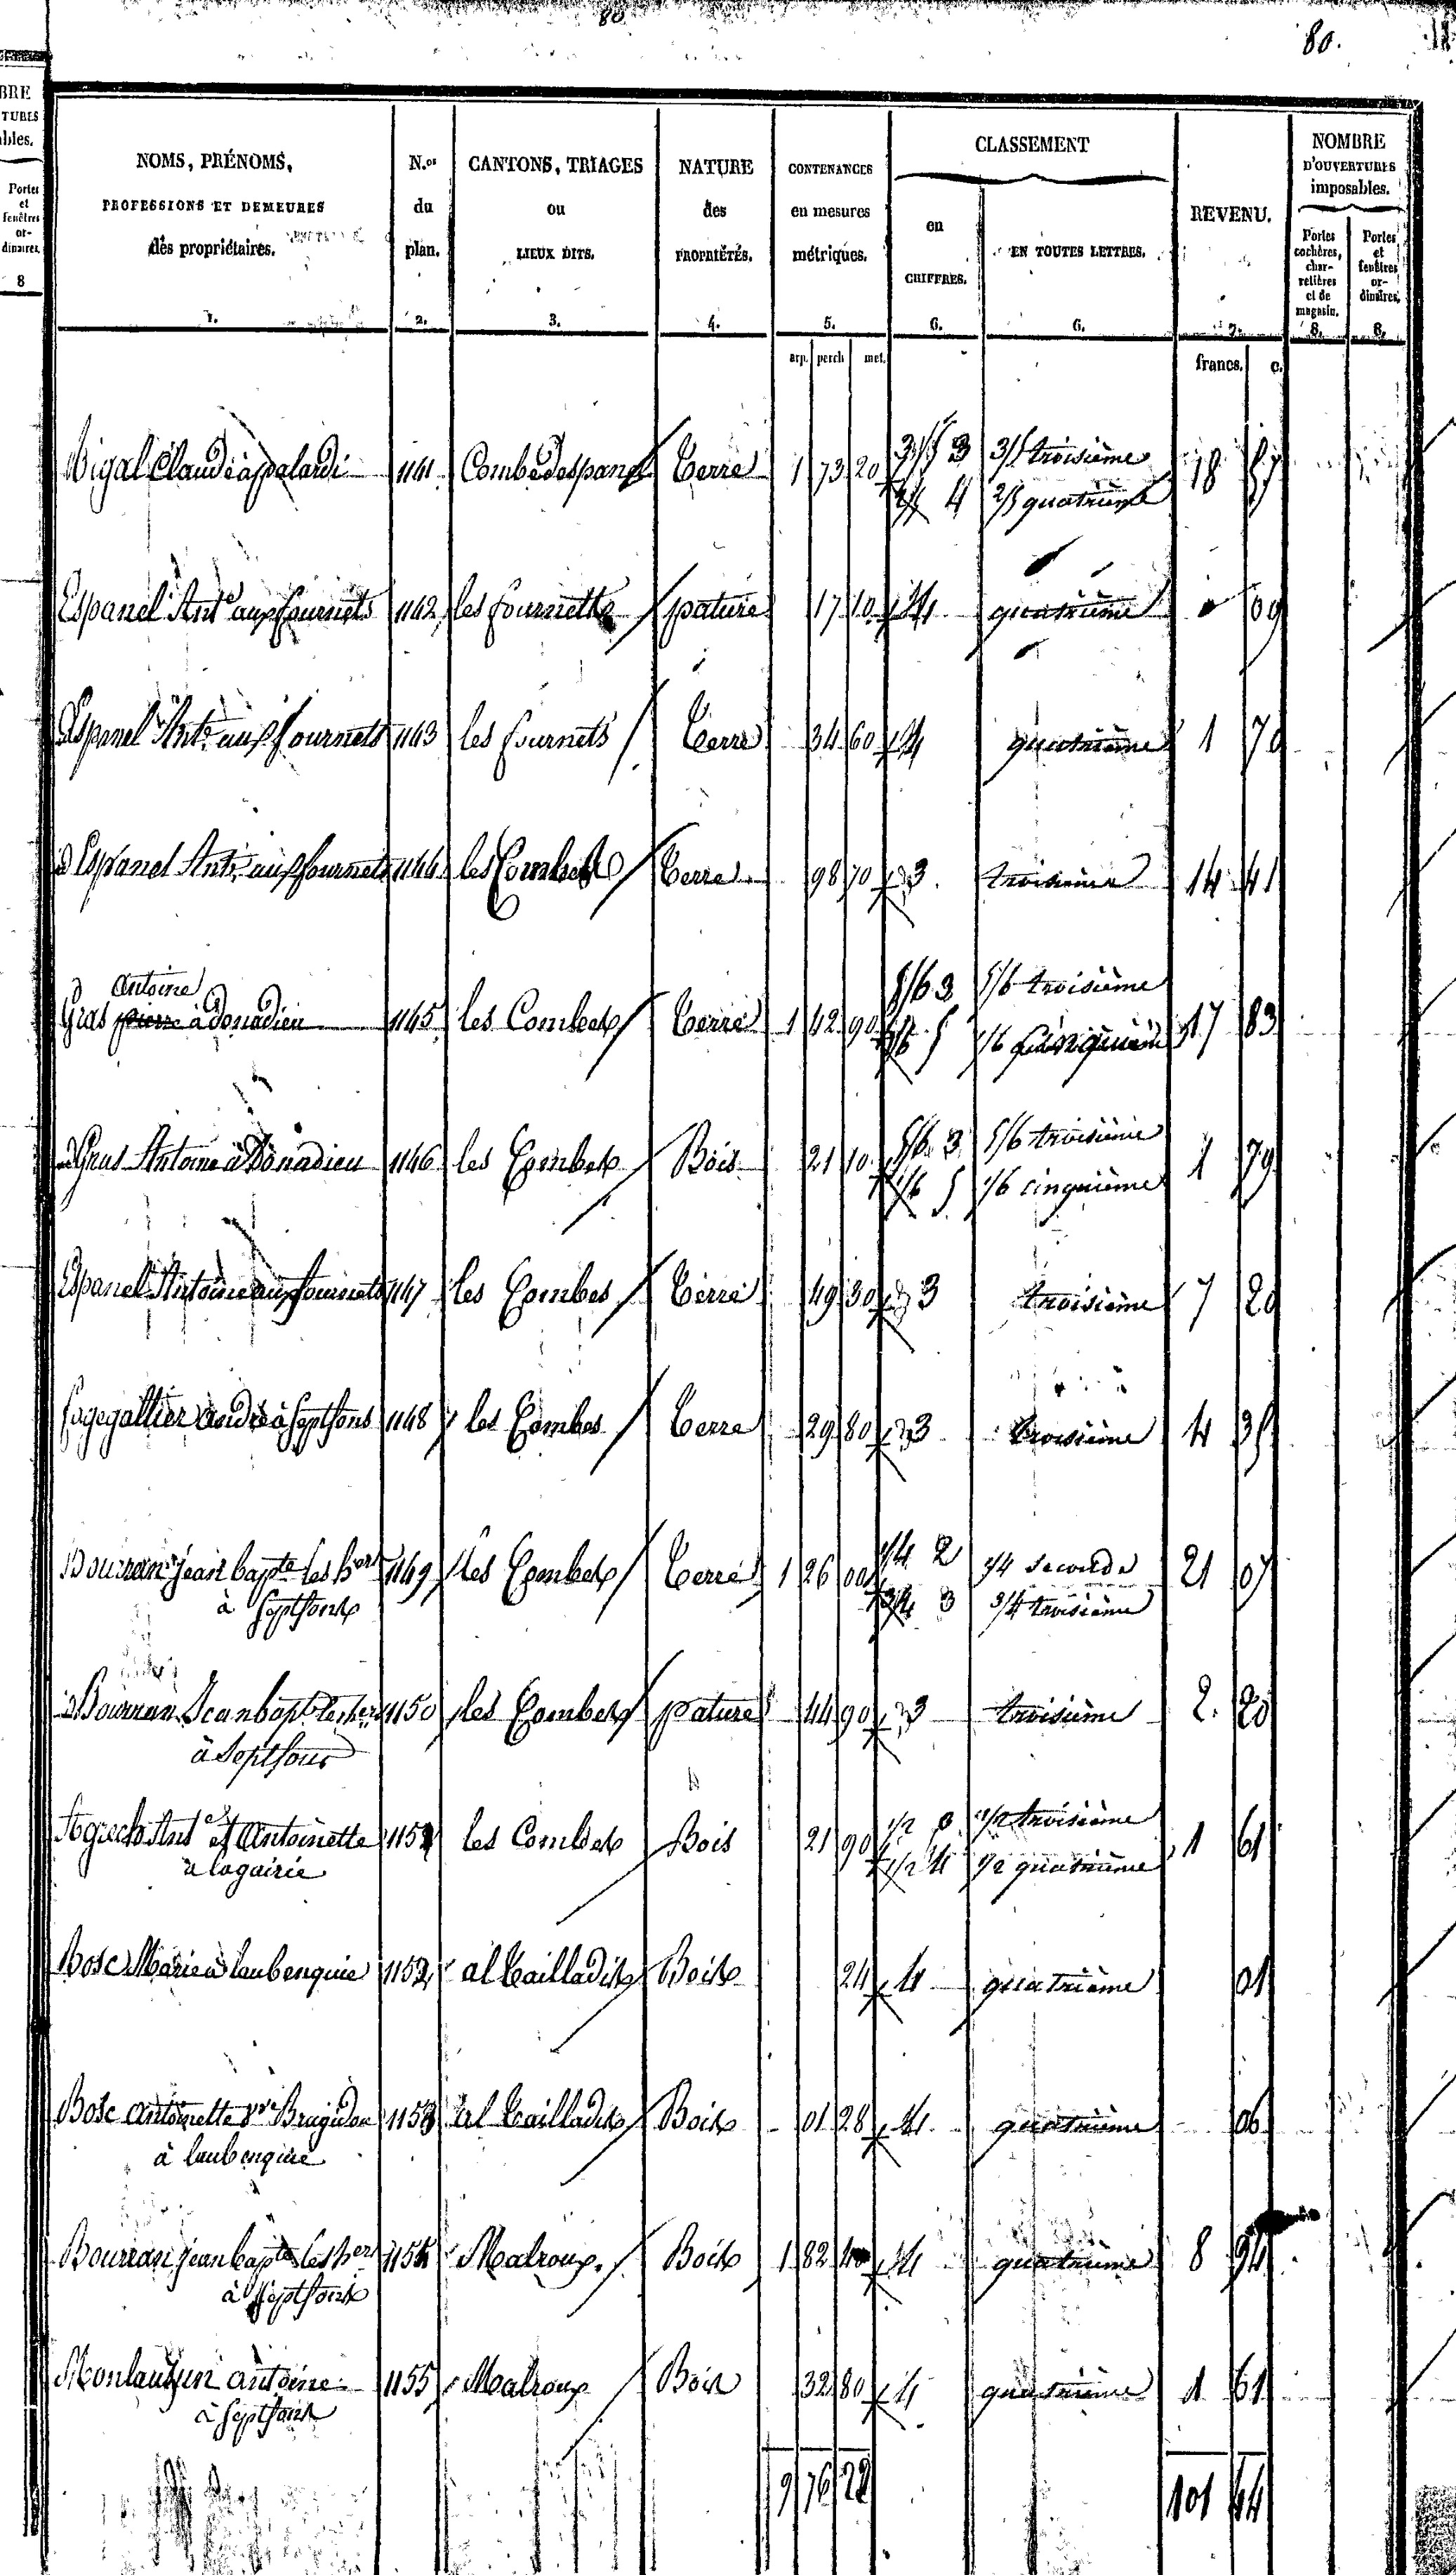 80.
80.
BRE
TURES
ables.
Portes
et
fenêtres
or-
dinaires.
8
NOMS, PRÉNOMS,
PROFESSIONS ET DEMEURES
des propriétaires.
1.
N.os
du
plan.
2.
CANTONS, TRIAGES
ou
LIEUX DITS.
3.
NATURE
des
PROPRIÉTÉS.
4.
CONTENANCES
en mesures
métriques.
5.
CLASSEMENT
en
CHIFFRES.
6.
EN TOUTES LETTRES.
6.
REVENU.
7.
NOMBRE
D'OUVERTURES
imposables.
Portes
cochères,
char-
retières
et de
magasin.
8.
Portes
et
fenêtres
or-
dinaires.
8.
arp. perch met. francs. c.
Bigal Claude à palardi 1141 Combe despanel Terre 1 73 20 3/5 3 3/5 troisième 18 87
2/5 4 2/5 quatrième
Espanel Ant.e aux fournets 1142 les fournets pature 17 10 4 quatrième 09
Espanel Ant.e aux fournets 1143 les fournets Terre 34 60 4 quatrième 1 70
Espanel Ant.e aux fournets 1144 les Combes Terre 98 70 3 troisième 14 41
Antoine
Gras pierre à Donadieu 1145 les Combes Terre 1 42 90 5/6 3 5/6 troisième 17 83
1/6 5 1/6 Cinquième
Gras Antoine à Donadieu 1146 les Combes Bois 21 10 5/6 3 5/6 troisième 1 79
1/6 5 1/6 cinquième
Espanel Antoine aux fournets 1147 les Combes Terre 49 30 3 troisième 7 20
andré à Septfons 1148 les Combes Terre 29 80 3 troisième 4 35
Bourran jean bapte les hers 1149 les Combes Terre 1 26 00 1/4 2 1/4 seconde 21 07
à Septfonts 3/4 3 3/4 troisième
Bourran Jean bapt. les hers 1150 les Combes pature 44 90 3 troisième 2. 20
à Septfons
Ant.e et Antoinette 1151 les Combes Bois 21 90 1/2 3 1/2 troisième 1 61
à lagairie 1/2 4 1/2 quatrième
Bosc Marie à laubenquie 1152 al Bois 24 4 quatrième 01
Bosc antoinette Vve 1153 al Bois 01 28 4 quatrième 06
à laubenquie
Bourran jean bapte les hers 1154 Malroux Bois 1 82 40 4 quatrième 8 94
à Septfonts
Monlauzun antoine 1155 Malroux Bois 32 80 4 quatrième 1 61
à Septfonts
9 76 22 101 44